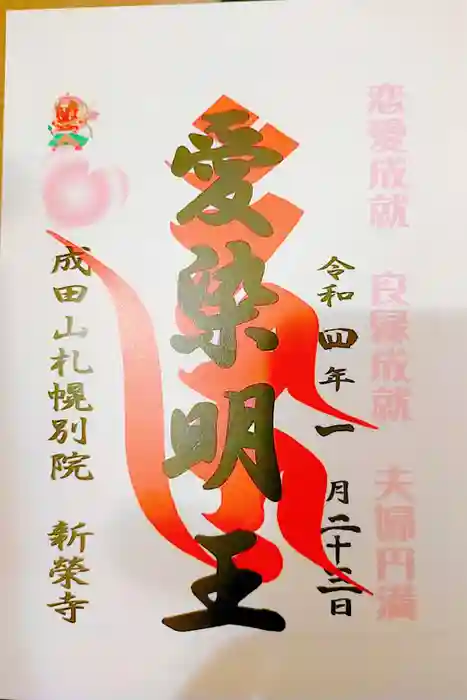 恋愛成就 良縁成就 夫婦円満
令和四年一月二十三日
愛染明王
成田山札幌別院 新榮寺